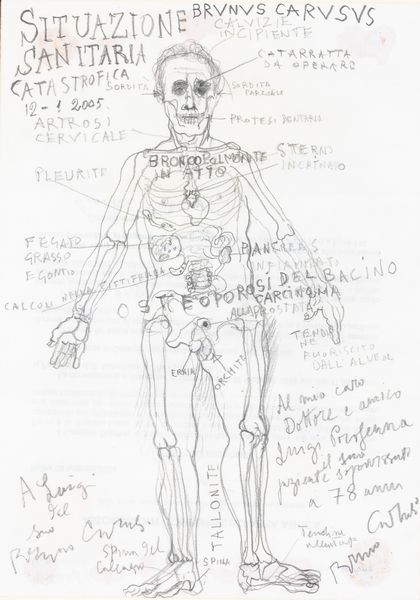 SITUAZIONE
SANITARIA
CATASTROFICA
12-1 2005.
BRUNUS CARUSUS
CALVIZIE
INCIPIENTE
CATARRATTA
DA OPERARE
SORDITÀ
SORDITÀ
PARZIALE
ARTROSI
CERVICALE
PROTESI DENTARIA
BRONCOPOLMONITE
IN ATTO
STERNO
INCRINATO
PLEURITE
FEGATO
GRASSO
E GONFIO
PANCREAS
INFIAMMATO
CALCOLI NELLA CISTIFELLEA
OSTEOPOROSI DEL BACINO
CARCINOMA
ALLA PROSTATA
TENDINE
FUORIUSCITO
DALL'ALVEOLO
ERNIA
ORCHITE
Al mio caro
Dottore e amico
Luigi
il suo
paziente
a 78 anni
Bruno
A Luigi
il
suo
TALLONITE
SPINA del
Calcagno
SPINA
Tendine